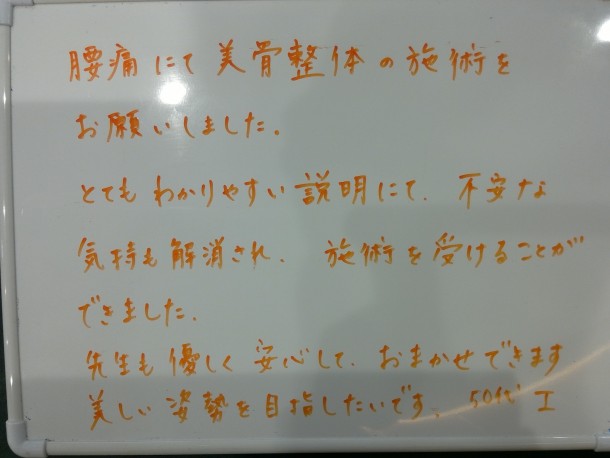 腰痛にて美骨整体の施術を
お願いしました.
とてもわかりやすい説明にて、不安な
気持も解消され、施術を受けることが
できました.
先生も優しく安心して、おまかせできます
美しい姿勢を目指したいです、50代 工